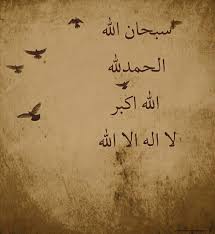 سبحان الله
الحمدلله
الله اكبر
لا اله الا الله